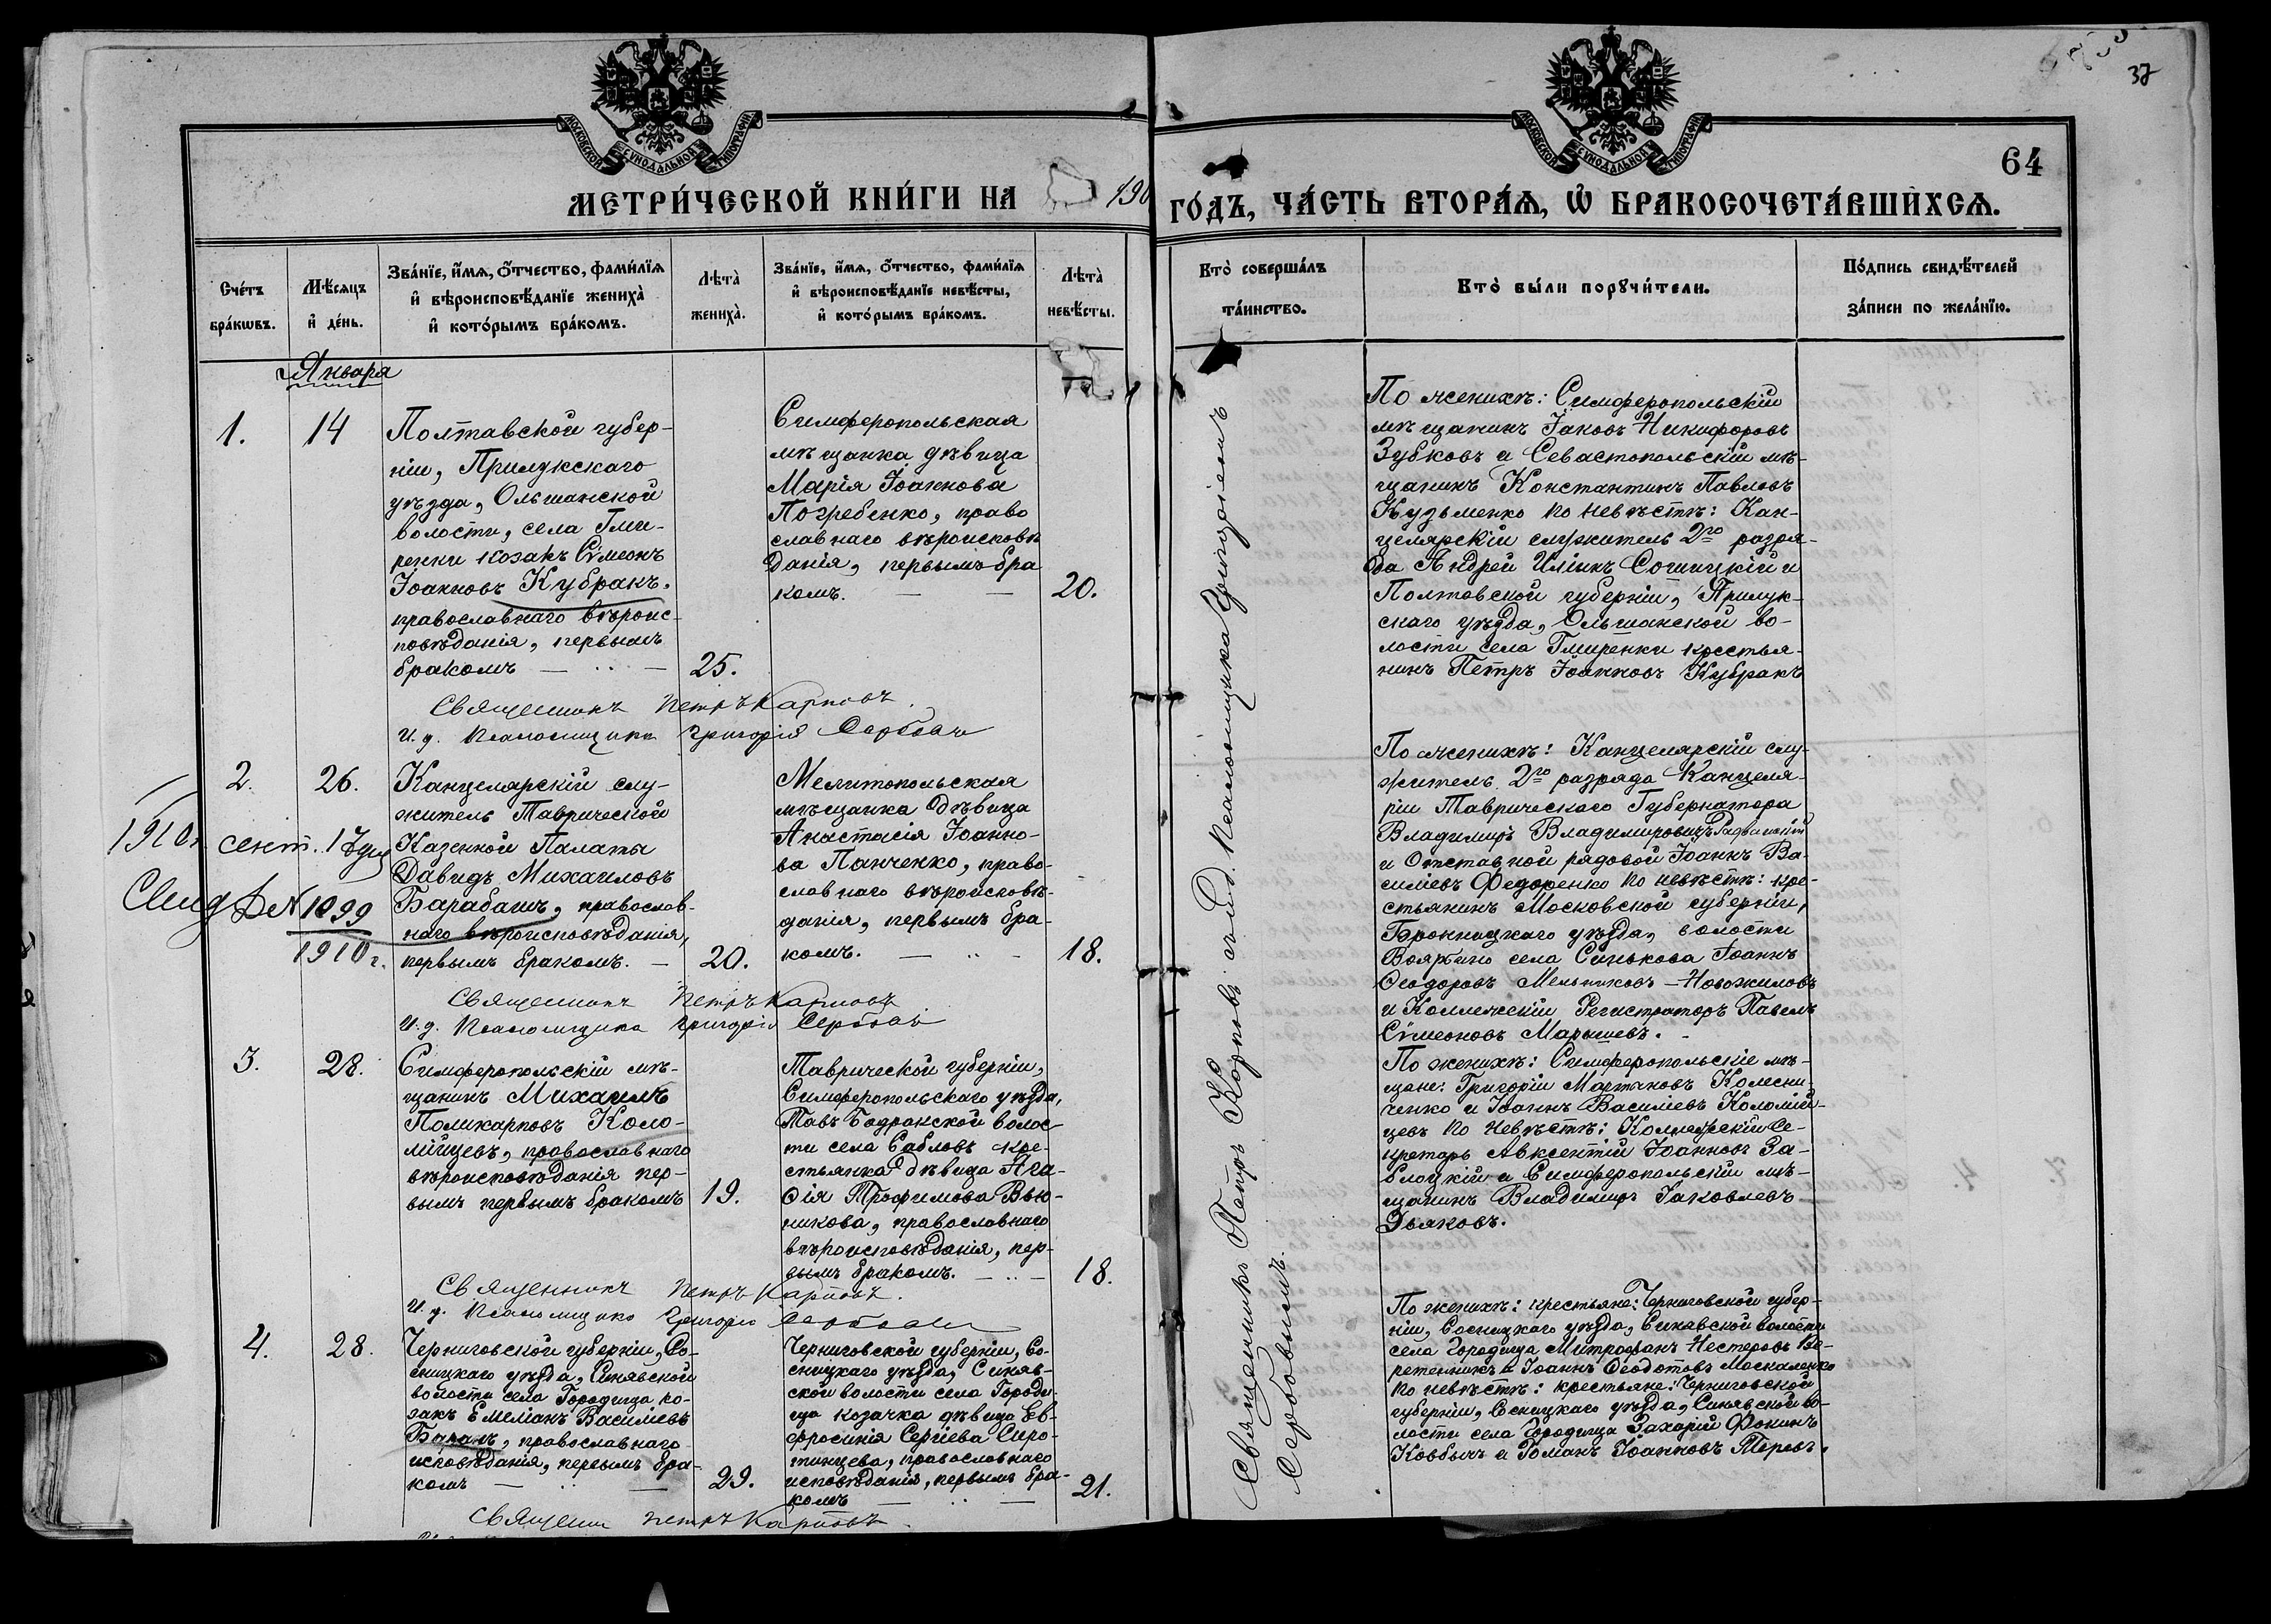 37
64
МОСКОВСКОЙ СУНОДАЛЬНОЙ ТИПОГРАФІИ
МОСКОВСКОЙ СУНОДАЛЬНОЙ ТИПОГРАФІИ
МЕТРИ́ЧЕСКОЙ КНИ́ГИ НА 190
ГО́ДЪ, ЧА́СТЬ ВТОРА́Ѧ, Ѡ҆ БРАКОСОЧЕТА́ВШИХСѦ.
Сче́тъ
бра́кѡвъ.
Мѣ́сѧцъ
и҆ де́нь.
Зва́нїе, и҆́мѧ, ѻ҆́тчество, фами́лїѧ
и҆ вѣроисповѣ́данїе жениха̀
и҆ кото́рымъ бра́комъ.
Лѣта̀
жениха̀.
Зва́нїе, и҆́мѧ, ѻ҆́тчество, фами́лїѧ
и҆ вѣроисповѣ́данїе невѣ́сты,
и҆ кото́рымъ бра́комъ.
Лѣта̀
невѣ́сты.
Кто̀ соверша́лъ
та́инство.
Кто̀ бы́ли порꙋчи́тели.
По́дпись свидѣ́телей
за́писи по жела́нїю.
Января
1.
14
Полтавской губер-
ніи, Прилукскаго
уѣзда, Ольшанской
волости, села Гми-
ренки козакъ Сѵмеонъ
Іоанновъ Кубракъ.
православнаго вѣроис-
повѣданія, первымъ
бракомъ — .. —
25.
Симферопольская
мѣщанка дѣвица
Марія Іоаннова
Погребенко, право
славнаго вѣроисповѣ
данія, первымъ бра
комъ. — —
20.
Священникъ Петръ Карповъ.
И. д. Псаломщика Григорій Сербовъ
По женихѣ: Симферопольскій
мѣщанинъ Іаковъ Никифоровъ
Зубковъ и Севастопольскій мѣ-
щанинъ Константинъ Павловъ
Кузьменко по невѣстѣ: Кан-
целярскій служитель 2го разря-
да Андрей Иліинъ Сошицкій и
Полтавской губерніи, Прилук-
скаго уѣзда, Ольшанской во-
лости села Гмиренки крестья-
нинъ Петръ Іоанновъ Кубракъ
2.
26.
Канцелярскій слу-
житель Таврической
Казенной Палаты
Давидъ Михаиловъ
Барабашъ, православ-
наго вѣроисповѣданія,
первымъ бракомъ. —
20.
1910г. сент.
Свид
№ 1099
1910 г.
Мелитопольская
мѣщанка дѣвица
Анастасія Іоанно-
ва Панченко, право-
славнаго вѣроисповѣ-
данія, первымъ бра-
комъ. — .. —
18.
Священникъ Петръ Карповъ
И. д. Псаломщика Григорій Сербовъ
По женихѣ: Канцелярскій слу-
житель 2го разряда Канцеля-
ріи Таврическаго Губернатора
Владимиръ Владимировичъ
и Отставной рядовой Іоаннъ Ва-
силіевъ Федоренко по невѣстѣ: кре-
стьянинъ Московской губерніи,
Бронницкаго уѣзда, волости
села Синькова Іоаннъ
Ѳеодоровъ Мельниковъ-Новожиловъ
и Коллежскій Регистраторъ Павелъ
Сѵмеоновъ Марышевъ.
3.
28.
Симферопольскій мѣ-
щанинъ Михаилъ
Поликарповъ Коло-
мійцевъ, православнаго
вѣроисповѣданія пер-
вымъ первымъ бракомъ
19.
Таврической губерніи,
Симферопольскаго уѣзда,
Тавъ Бодракской волос-
ти села Сабловъ кре-
стьянка дѣвица Ага-
ѳія Трофимова Вью-
никова, православнаго
вѣроисповѣданія, пер-
вымъ бракомъ. — .. —
18.
Священникъ Петръ Карповъ.
И. д. Псаломщика Григорій Сербовъ
По женихѣ: Симферопольскіе мѣ-
щане: Григорій Мартиновъ Колесни-
ченко и Іоаннъ Василіевъ Коломій-
цевъ по невѣстѣ: Коллежскій Се-
кретарь Авксентій Іоанновъ За-
блоцкій и Симферопольскій мѣ-
щанинъ Владимиръ Іаковлевъ
Дьяковъ.
4.
28.
Черниговской губерніи, Со-
сницкаго уѣзда, Синявской
волости села Городища ко-
закъ Емеліанъ Василіевъ
Баранъ, православнаго
исповѣданія, первымъ бра-
комъ — .. —
29.
Черниговской губерніи, Со-
сницкаго уѣзда, Синяв-
ской волости села Городи-
ща козачка дѣвица Ев-
фросинія Сергіева Сиро-
тинцева, православнаго
исповѣданія, первымъ бра-
комъ — .. —
21.
Священн Петръ Карповъ.
По женихѣ: крестьяне: Черниговской губер-
ніи, Сосницкаго уѣзда, Синявской волости
села Городища Митрофанъ Нестеровъ Ве-
ретенникъ и Іоаннъ Ѳеодотовъ Москаленко
по невѣстѣ: крестьяне: Черниговской
губерніи, Сосницкаго уѣзда, Синявской во-
лости села Городища Захарій Фокинъ
Ковбычъ и Романъ Іоанновъ
Священникъ Петръ Карповъ съ и.д. Псаломщика Григоріемъ
Сербовымъ.